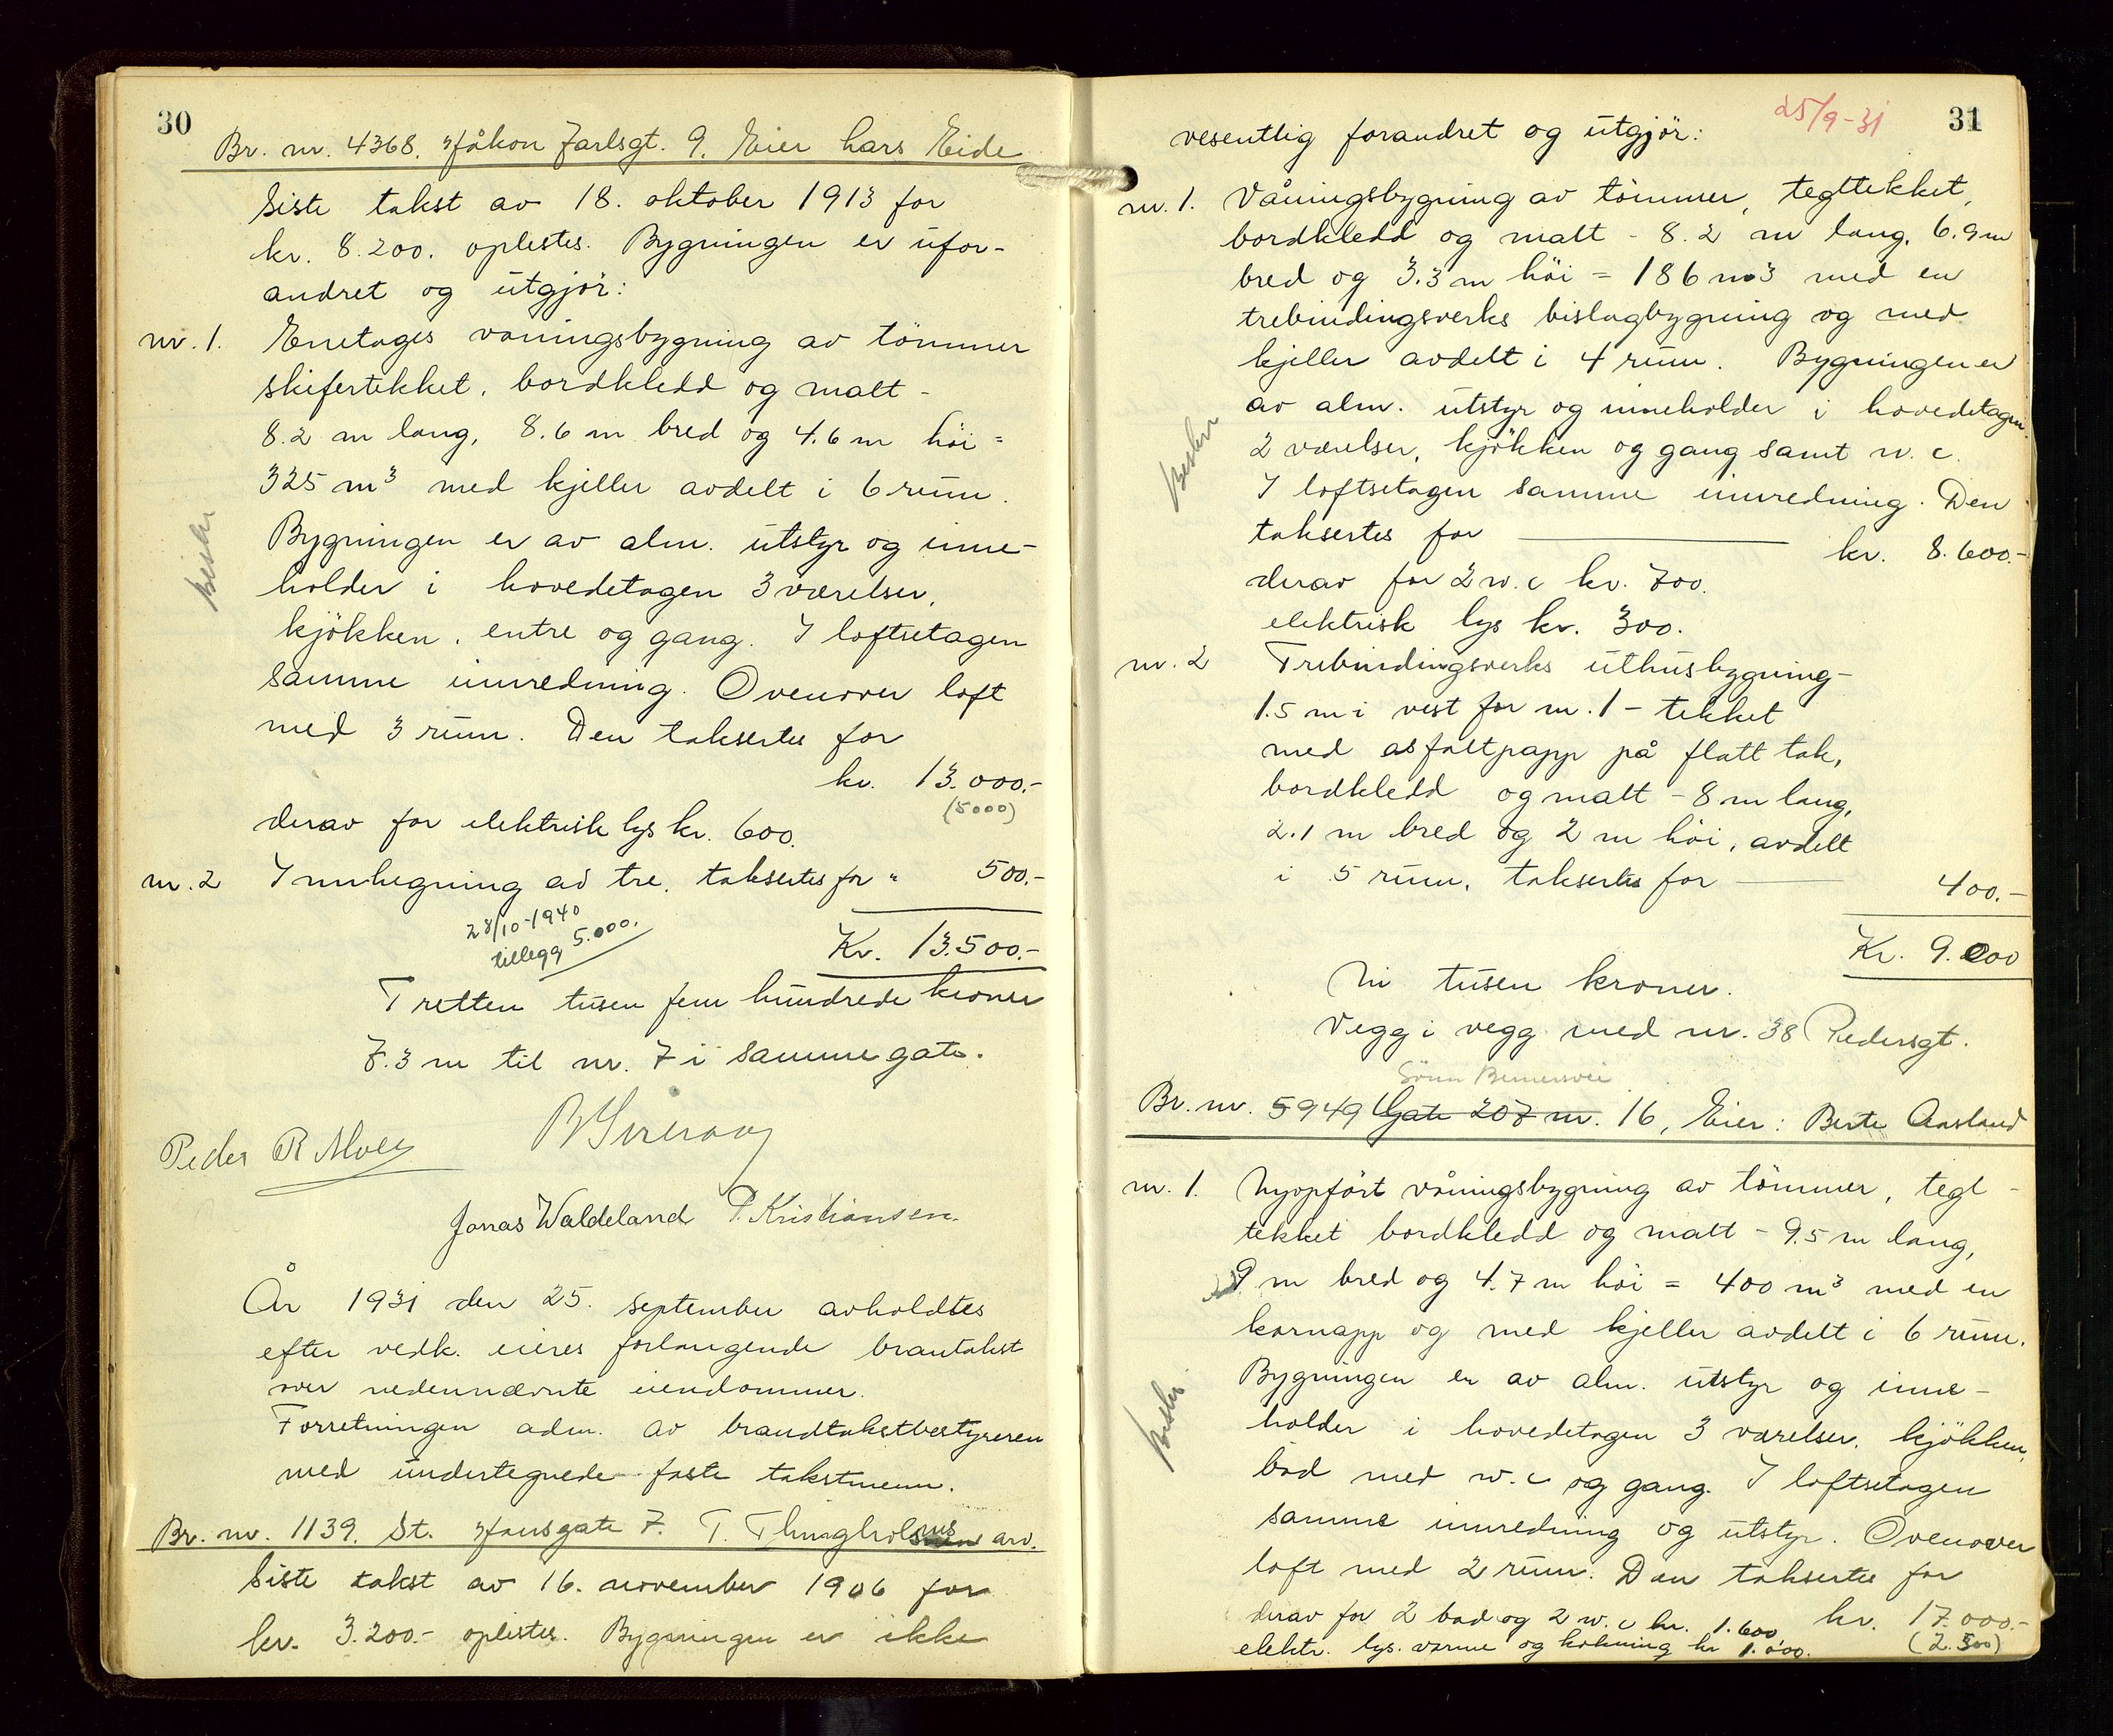 30
Br. nr. 4368. Håkon Jarlsgt. 9. Eier Lars Eide
Siste takst av 18. oktober 1913 for
kr. 8.200. oplestes. Bygningen er ufor-
andret og utgjör:
nr. 1. Enetages vaningsbygning av tömmer
skifertekket, bordkledd og malt -
8.2 m lang, 8.6 m bred og 4.6 m höi =
325 m³ med kjeller avdelt i 6 rum.
Bygningen er av alm. utstyr og inne-
holder i hovedetagen 3 værelser,
kjökken, entre og gang. I loftsetagen
samme innredning. Ovenover loft
med 3 rum. Den taksertes for
kr. 13.000.-
(5000)
derav for elektrisk lys kr. 600.
nr. 2 Innhegning av tre, taksertes for " 500.-
28/10-1940
tillegg 5.000.
Kr. 13.500.-
Tretten tusen fem hundrede kroner
7.3 m til nr. 7 i samme gate.
Peder R
Jonas Waldeland P. Kristiansen.
År 1931 den 25. september avholdtes
efter vedk. eieres forlangende brantakst
over nedennævnte eiendommer.
Forretningen adm. av brandtakstbestyreren
med undertegnede faste takstmenn.
Br. nr. 1139. St. Hansgate 7. T. arv.
Siste takst av 16. november 1906 for
kr. 3.200.- oplestes. Bygningen er ikke
25/9-31
31
vesentlig forandret og utgjör:
nr. 1. Våningsbygning av tömmer, tegltekket,
bordkledd og malt - 8.2 m lang, 6.9 m
bred og 3.3 m höi = 186 m3 med en
trebindingsverks bislagbygning og med
kjeller avdelt i 4 rum. Bygningen er
av alm. utstyr og inneholder i hovedetagen
2 værelser, kjökken og gang samt w. c.
I loftsetagen samme innredning. Den
taksertes for kr. 8.600.-
derav for 2 w. c kr. 700.
elektrisk lys kr. 300.
nr. 2 Trebindingsverks uthusbygning -
1.5 m i vest for nr. 1 - tekket
med asfaltpapp på flatt tak,
bordkledd og malt - 8 m lang,
2.1 m bred og 2 m höi, avdelt
i 5 rum, taksertes for 400.-
Kr. 9.000
Ni tusen kroner.
Vegg i vegg med nr. 38 Pedersgt.
Br. nr. 5949 Gate 207 nr. 16, Eier: Berte Aasland
nr. 1. Nyopfört våningsbygning av tömmer, tegl-
tekket bordkledd og malt - 9.5 m lang,
9 m bred og 4.7 m höi = 400 m³ med en
karnapp og med kjeller avdelt i 6 rum.
Bygningen er av alm. utstyr og inne-
holder i hovedetagen 3 værelser, kjökken,
bad med w. c og gang. I loftsetagen
samme innredning og utstyr. Ovenover
loft med 2 rum. Den taksertes for
derav for 2 bad og 2 w. c kr. 1.600 kr. 17.000.-
elektr. lys. varme og kokning kr 1.000. (2.500)